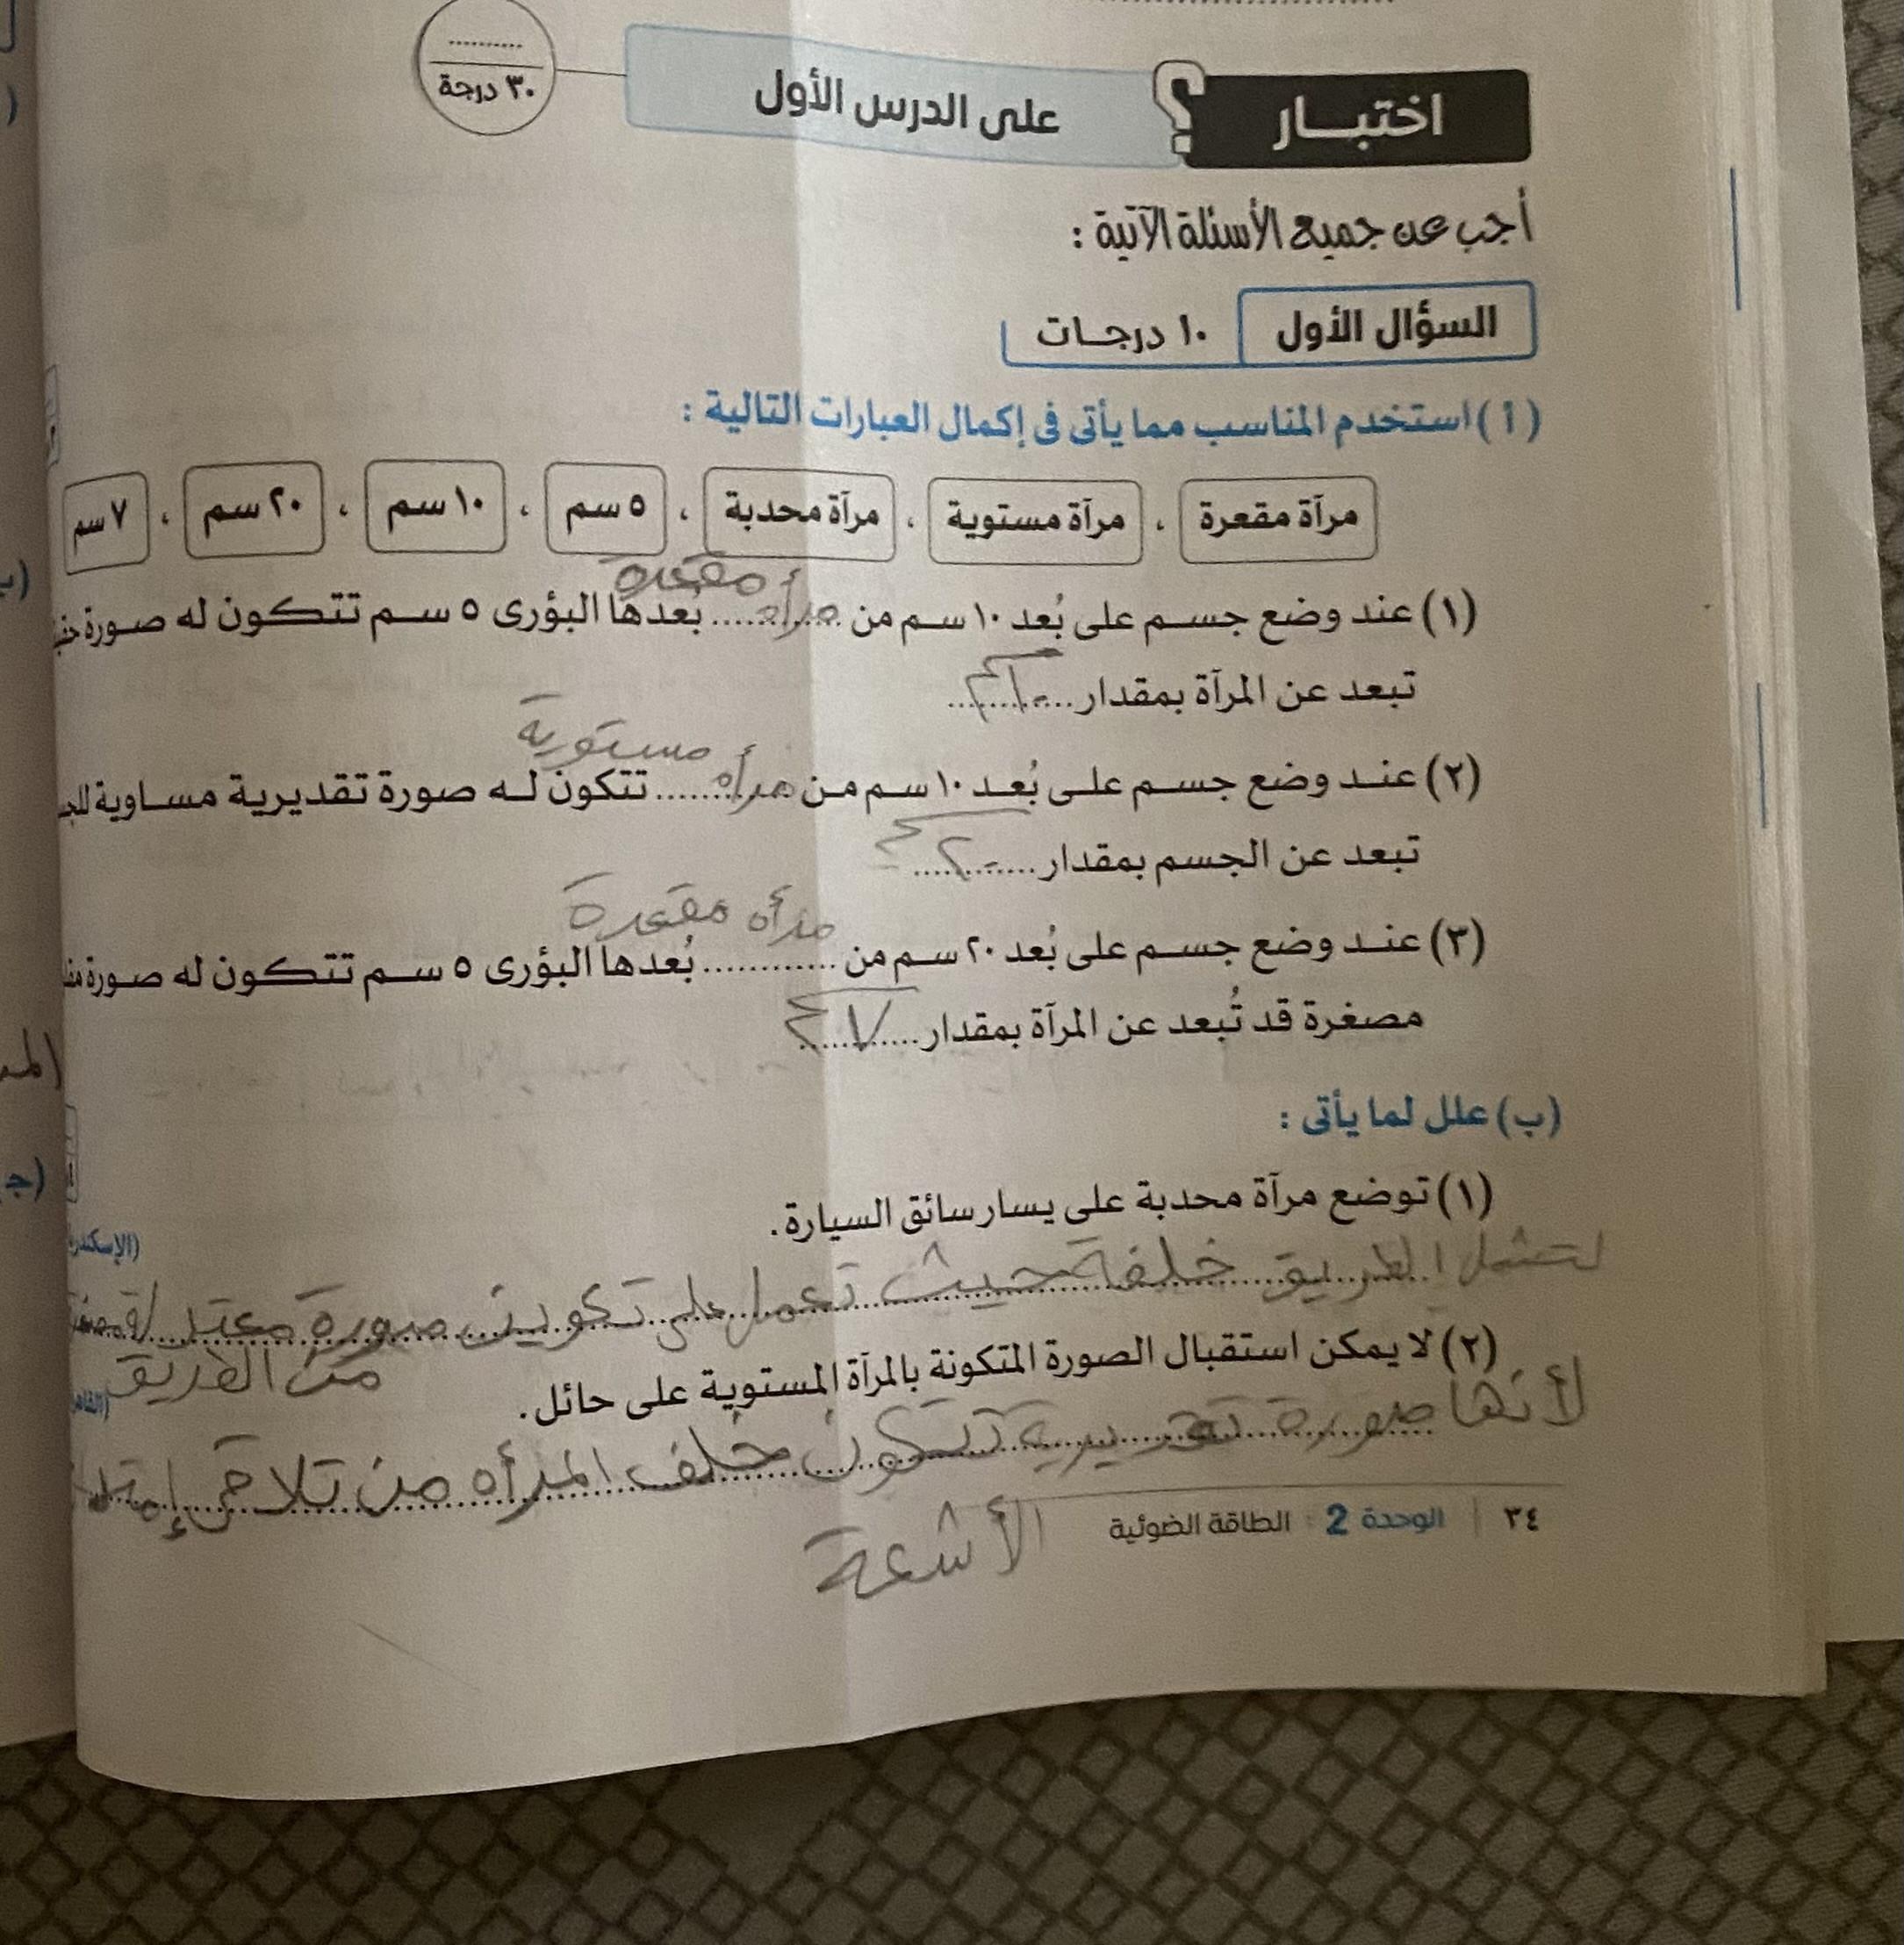 ٣٠ درجة
اختبار ؟ على الدرس الأول
أجب عن جميع الأسئلة الآتية :
السؤال الأول ١٠ درجات
( أ ) استخدم المناسب مما يأتى فى إكمال العبارات التالية :
مرآة مقعرة ، مرآة مستوية ، مرآة محدبة ، ٥ سم ، ١٠ سم ، ٢٠ سم ، ٧ سم
مقعرة
(١) عند وضع جسم على بُعد ١٠ سم من مرأه بُعدها البؤرى ٥ سم تتكون له صورة
تبعد عن المرآة بمقدار ١٠ سم
مستوية
(٢) عند وضع جسم على بُعد ١٠ سم من مرأه تتكون له صورة تقديرية مساوية
تبعد عن الجسم بمقدار ٢٠ سم
مرأه مقعرة
(٣) عند وضع جسم على بُعد ٢٠ سم من بُعدها البؤرى ٥ سم تتكون له صورة
مصغرة قد تُبعد عن المرآة بمقدار ٧ سم
(ب) علل لما يأتى :
(١) توضع مرآة محدبة على يسار سائق السيارة.
لتشمل الطريق خلفة حيث تعمل على تكوين صورة معتدلة
من الطريق
(٢) لا يمكن استقبال الصورة المتكونة بالمرآة المستوية على حائل.
لأنها صورة تقديرية تتكون خلف المرأه من تلاقى
الأشعة
٣٤ | الوحدة 2 : الطاقة الضوئية